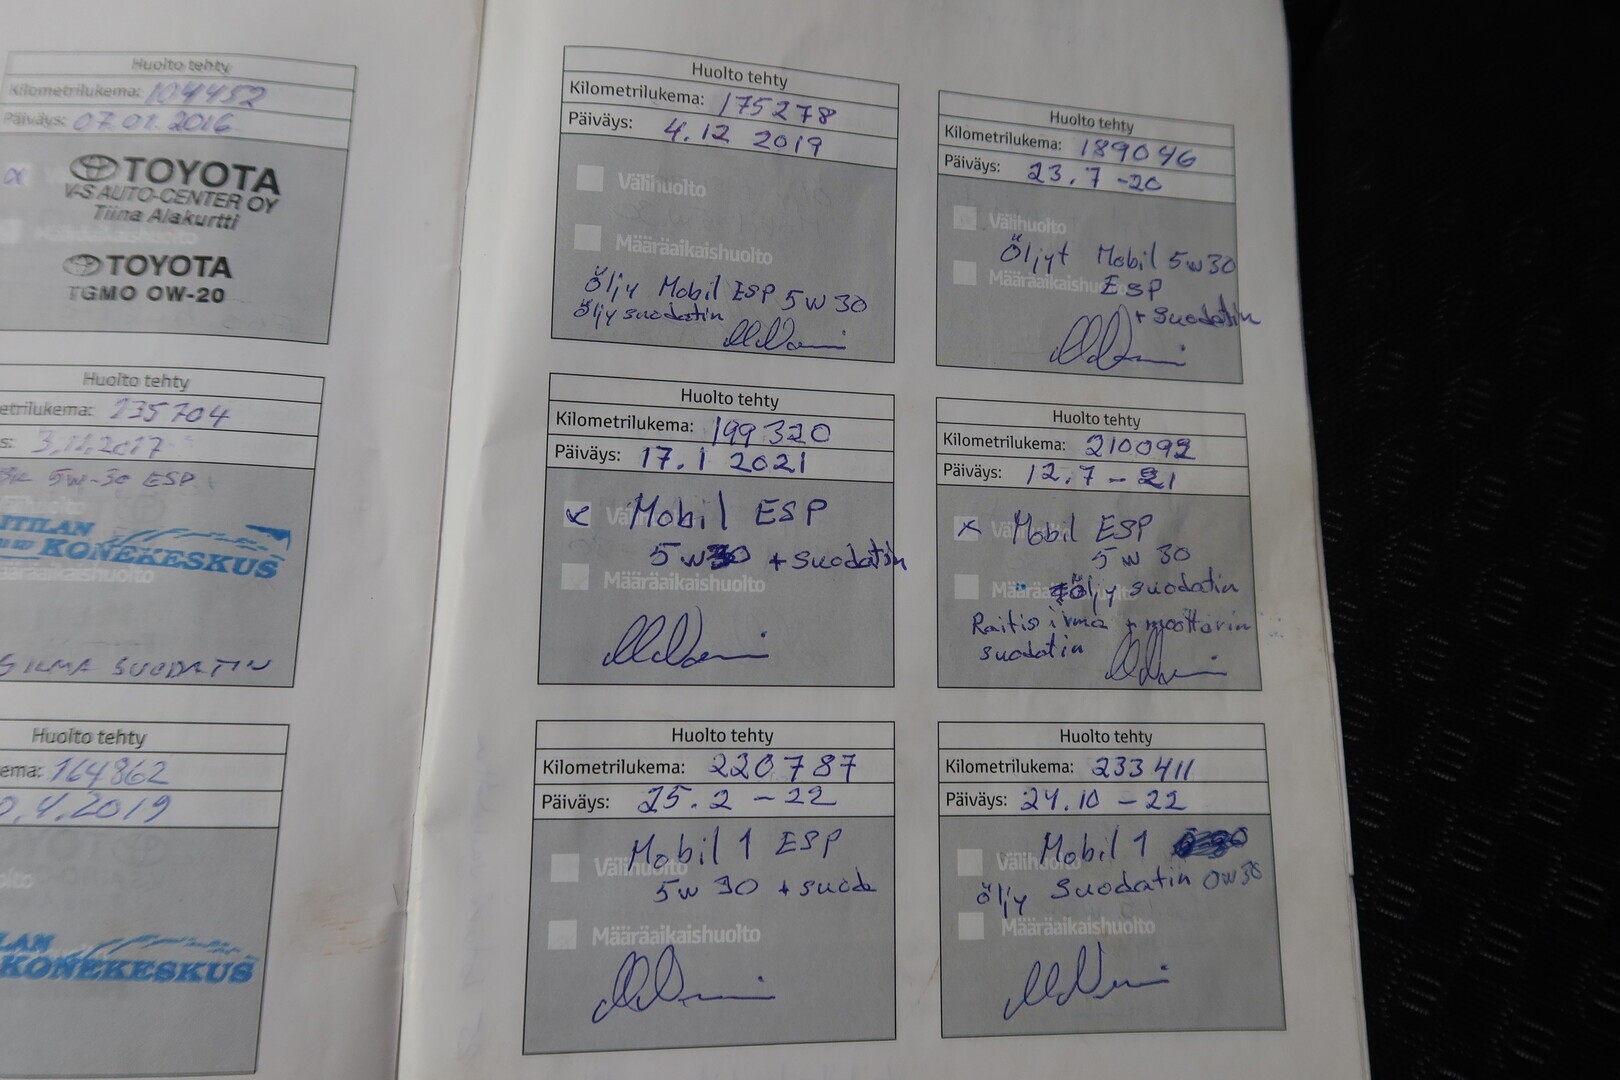 Huolto tehty
Kilometrilukema: 104452
Päiväys: 07.01.2016
TOYOTA
V-S AUTO-CENTER OY
Tiina Alakurtti
TOYOTA
TGMO OW-20
Huolto tehty
etrilukema: 135704
s: 3.11.2017
5w-30 ESP
ITILAN
KONEKESKUS
SILMA SUODATIN
Huolto tehty
ema: 164862
0.4.2019
LAM
KONEKESKUS
Huolto tehty
Kilometrilukema: 175278
Päiväys: 4.12 2019
Välihuolto
Määräaikaishuolto
Öljy Mobil ESP 5w30
Öljy suodatin
Huolto tehty
Kilometrilukema: 189046
Päiväys: 23.7 -20
Välihuolto
Öljyt Mobil 5w30
Määräaikaishuolto
ESP
+ suodatin
Huolto tehty
Kilometrilukema: 199320
Päiväys: 17.1 2021
x Välihuolto
Mobil ESP
5w30 + suodatin
Määräaikaishuolto
Huolto tehty
Kilometrilukema: 210092
Päiväys: 12.7 - 21
x Mobil ESP
5w30
Määräaikaishuolto
öljy suodatin
Raitis ilma + moottorin
suodatin
Huolto tehty
Kilometrilukema: 220787
Päiväys: 25.2 -22
Mobil 1 ESP
Välihuolto
5w 30 + suoda
Määräaikaishuolto
Huolto tehty
Kilometrilukema: 233411
Päiväys: 24.10 -22
Mobil 1
Välihuolto
öljy suodatin 0w30
Määräaikaishuolto